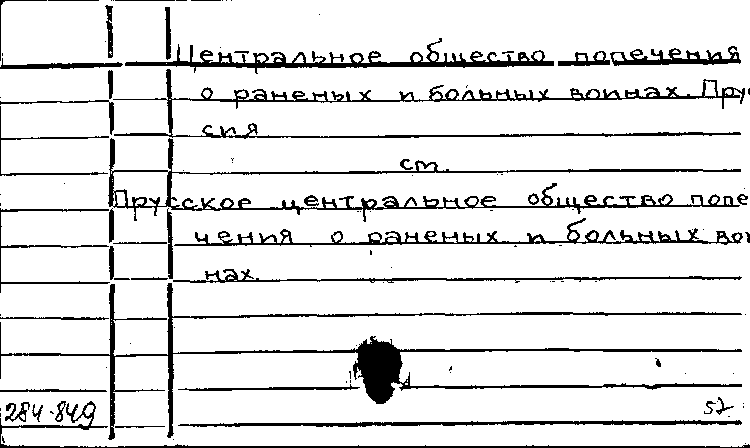 Центральное общество попечения
о раненых и больных воинах. Прус
сия
см.
Прусское центральное общество попе
чения о раненых и больных вои
нах.
284-849
57